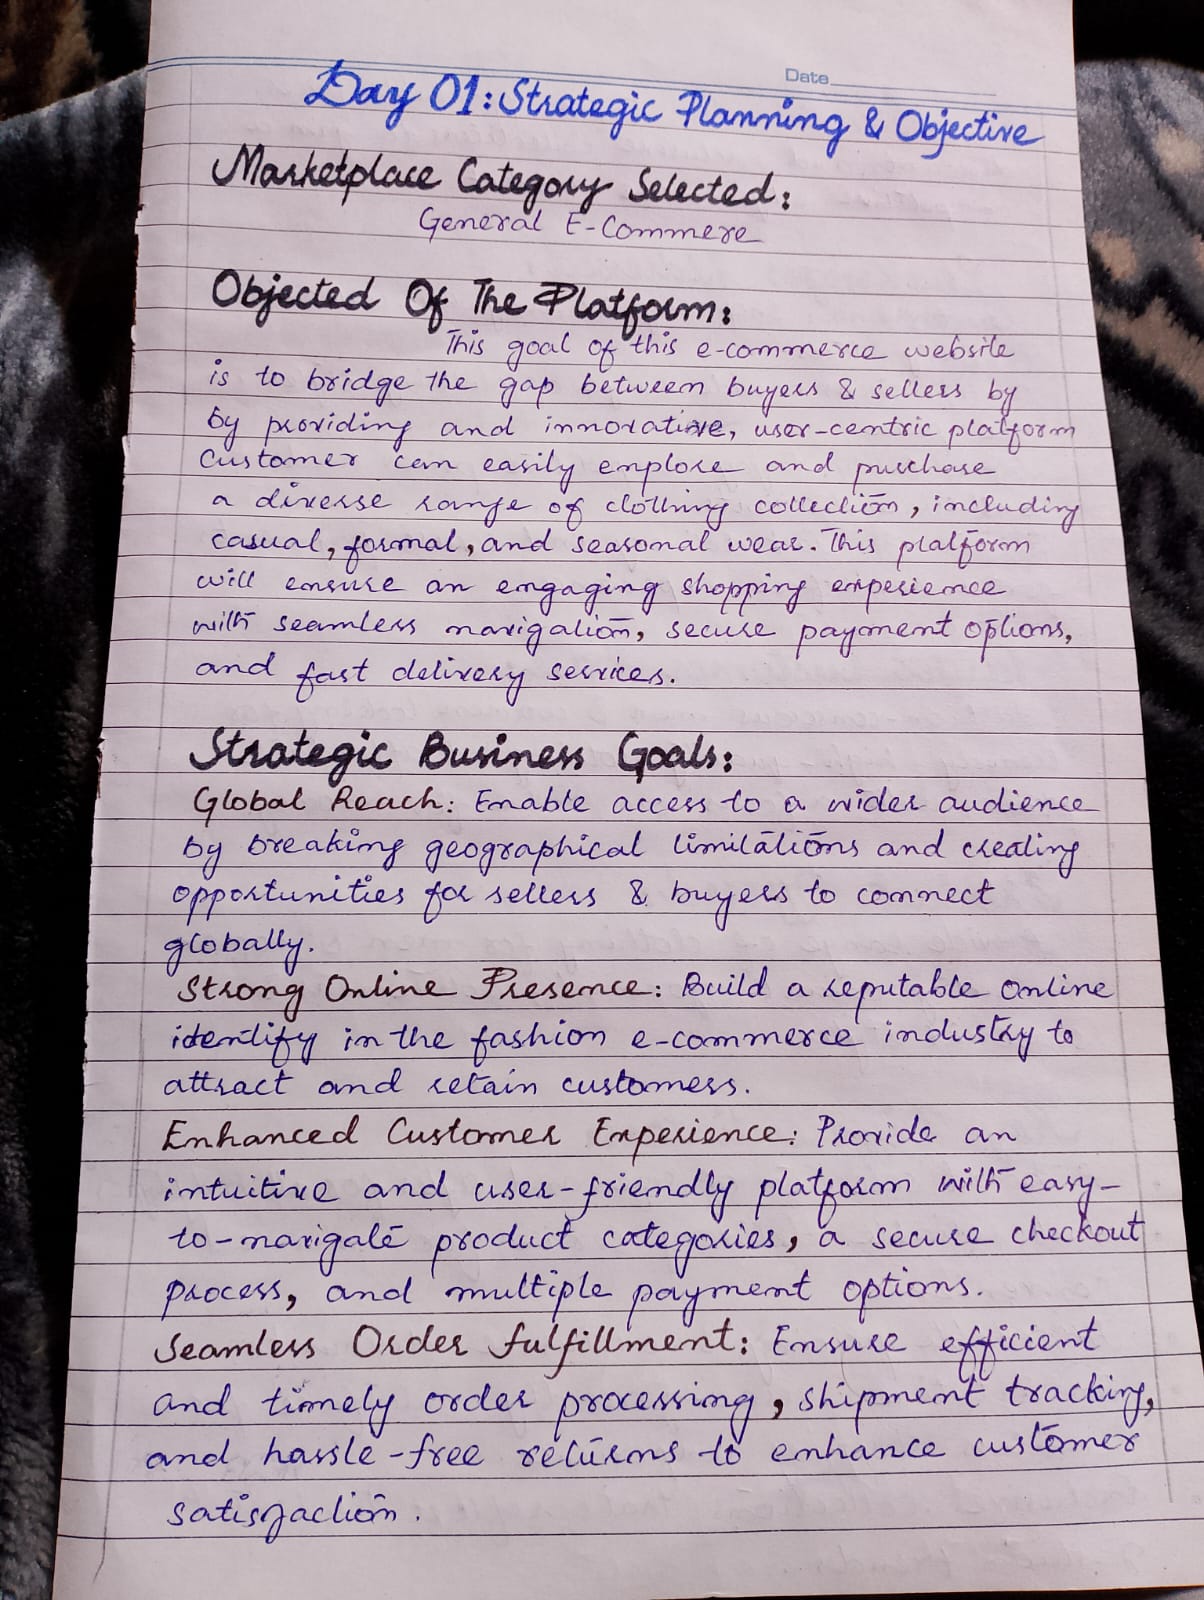 Date
Day 01: Strategic Planning & Objective
Marketplace Category Selected:
General E-Commere
Objected Of The Platform:
This goal of this e-commerce website
is to bridge the gap between buyers & sellers by
by providing and innovative, user-centric platform
customer can easily explore and purchase
a diverse range of clothing collection, including
casual, formal, and seasonal wear. This platform
will ensure an engaging shopping experience
with seamless navigation, secure payment options,
and fast delivery services.
Strategic Business Goals:
Global Reach: Enable access to a wider audience
by breaking geographical limitations and creating
opportunities for sellers & buyers to connect
globally.
Strong Online Presence: Build a reputable online
identify in the fashion e-commerce industry to
attract and retain customers.
Enhanced Customer Experience: Provide an
intuitive and user-friendly platform with easy-
to-navigate product categories, a secure checkout
process, and multiple payment options.
Seamless Order fulfillment: Ensure efficient
and timely order processing, shipment tracking,
and hassle-free returns to enhance customer
satisfaction.